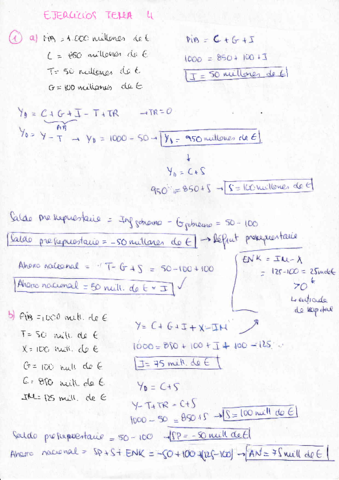 EJERCICIOS TEMA 4
① a) PIB = 1.000 millones de €
C = 850 millones de €
T = 50 millones de €
G = 100 millones de €
PIB = C + G + I
1000 = 850 + 100 + I
I = 50 millones de €
YD = C + G + I - T + TR → TR = 0
YD = Y - T → YD = 1000 - 50 → YD = 950 millones de €
YD = C + S
950 = 850 + S → S = 100 millones de €
Saldo presupuestario = Ing público - G público = 50 - 100
Saldo presupuestario = -50 millones de € → Déficit presupuestario
Ahorro nacional = T - G + S = 50 - 100 + 100
Ahorro nacional = 50 mill. de € = I ✓
ENK = IM - X
= 125 - 100 = 25 mill de €
> 0
↳ entrada de capital
b) PIB = 1.000 mill. de €
T = 50 mill. de €
X = 100 mill. de €
G = 100 mill de €
C = 850 mill. de €
IM = 125 mill. de €
Y = C + G + I + X - IM
1000 = 850 + 100 + I + 100 - 125
I = 75 mill. de €
YD = C + S
Y - T + TR = C + S
1000 - 50 = 850 + S → S = 100 mill de €
Saldo presupuestario = 50 - 100 → SP = -50 mill de €
Ahorro nacional = SP + S + ENK = -50 + 100 + (125 - 100) → AN = 75 mill de €